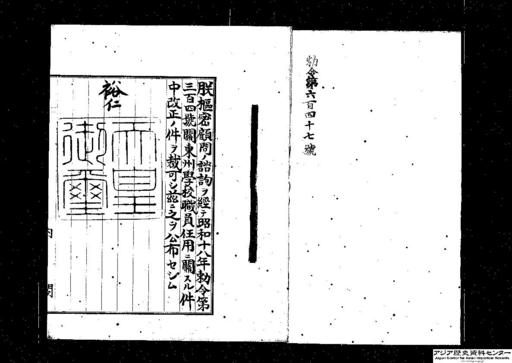 勅令第六百四十七號
朕樞密顧問ノ諮詢ヲ經テ昭和十八年勅令第
三百四號關東州學校職員任用ニ關スル件
中改正ノ件ヲ裁可シ茲ニ之ヲ公布セシム
裕仁
天皇
御璽
内
閣
アジア歴史資料センター
Japan Center for Asian Historical Records